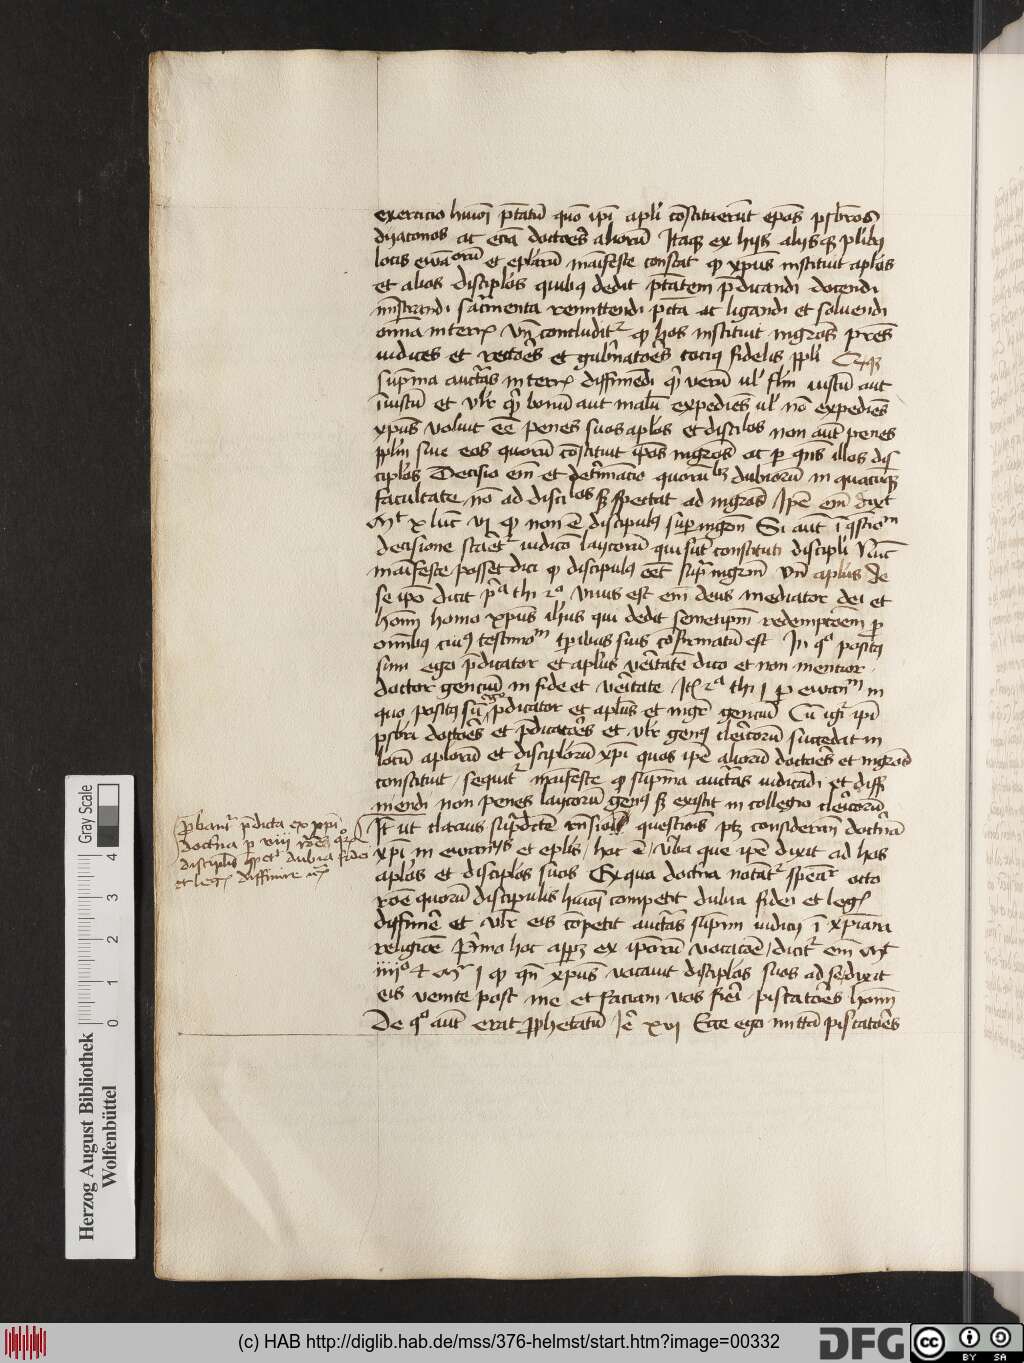 exercicio huiusmodi ptatum quo ipi apli constituerunt epos psbros
dyaconos ac etia doctoes aliorum Itaque ex hijs alijsque plibus
locis ewaorum et eplarum manifeste constat quod xpus instituit aplos
et alios disciplos quibus dedit ptatem predicandi docendi
ministrandi sacramenta remittendi pctā ac ligandi et soluendi
omnia in terris Vn concluditur quod hos instituit mgros pres
iudices et rectores et gubernatores tocius fidelis ppli
suprema auctas in terris diffiniendi quid verum vel flm iustum aut
iniustum et vlr quid bonum aut malum expediens vel non expediens
xpus voluit esse penes suos aplos et disciplos non autem penes
pplm siue eos quorum constituit ipos mgros ac per quos illos dis
ciplos Decisio enim et determinacio quorumlibet dubiorum in quacumque
facultate non ad disciplos sed spectat ad mgros Ipe enim dixit
Mt x luc vi quod non est discipulus super mgrm Si autem in questione
decisione staretur iudicio laycorum qui sunt constituti discipli Nunc
manifeste posset dici quod discipulus esset supra mgrm Vn aplus de
se ipo dicit pa thi 2o vnus est enim deus mediator dei et
hominum homo xpus ihus qui dedit semetipm redempcoem pro
omnibus cuius testimonium temporibus suis confirmatum est In quo positus
sum ego predicator et aplus veritate dico et non mentior
doctor gencium in fide et veritate Itē 2a thi i per ewanm in
quo positus sum ego predicator et aplus et mgr gencium Cum igitur ipi
psbri doctores et predicatores et vlr genus clericorum succedat in
locum aplorum et disciplorum xpi quos ipe aliorum doctores et mgros
constituit sequitur manifeste quod suprema auctas iudicandi et diff
iniendi non penes laycorum genus sed existit in collegio clericorum
Itē ut clarius supradicte responsiones questionis patet considerandum doctrinā
xpi in ewanijs et eplis hoc est verba que ipe dixit ad hos
aplos et disciplos suos Ex qua doctrina notatur specialiter octo
rones quorum discipulis huiusmodi competit dubia fidei et legis
diffinire et vlr eis competit auctas supremi iudicij in xpiana
religione Primo hoc apparet ex ipsorum vocacione dicitur enim Mt
iiiio et Mr i quod quando xpus vocauit disciplos suos ad se dixit
eis venite post me et faciam vos fieri piscatores hominum
De quo autem erat prophetatum Je xvi Ecce ego mittam piscatores
Probantur predicta ex xpi
doctrina per viii rones quod
disciplis spectet dubia fidei
et legis diffinire
Herzog August Bibliothek
Wolfenbüttel
0 1 2 3 4
Gray Scale
(c) HAB http://diglib.hab.de/mss/376-helmst/start.htm?image=00332
DFG
cc BY SA